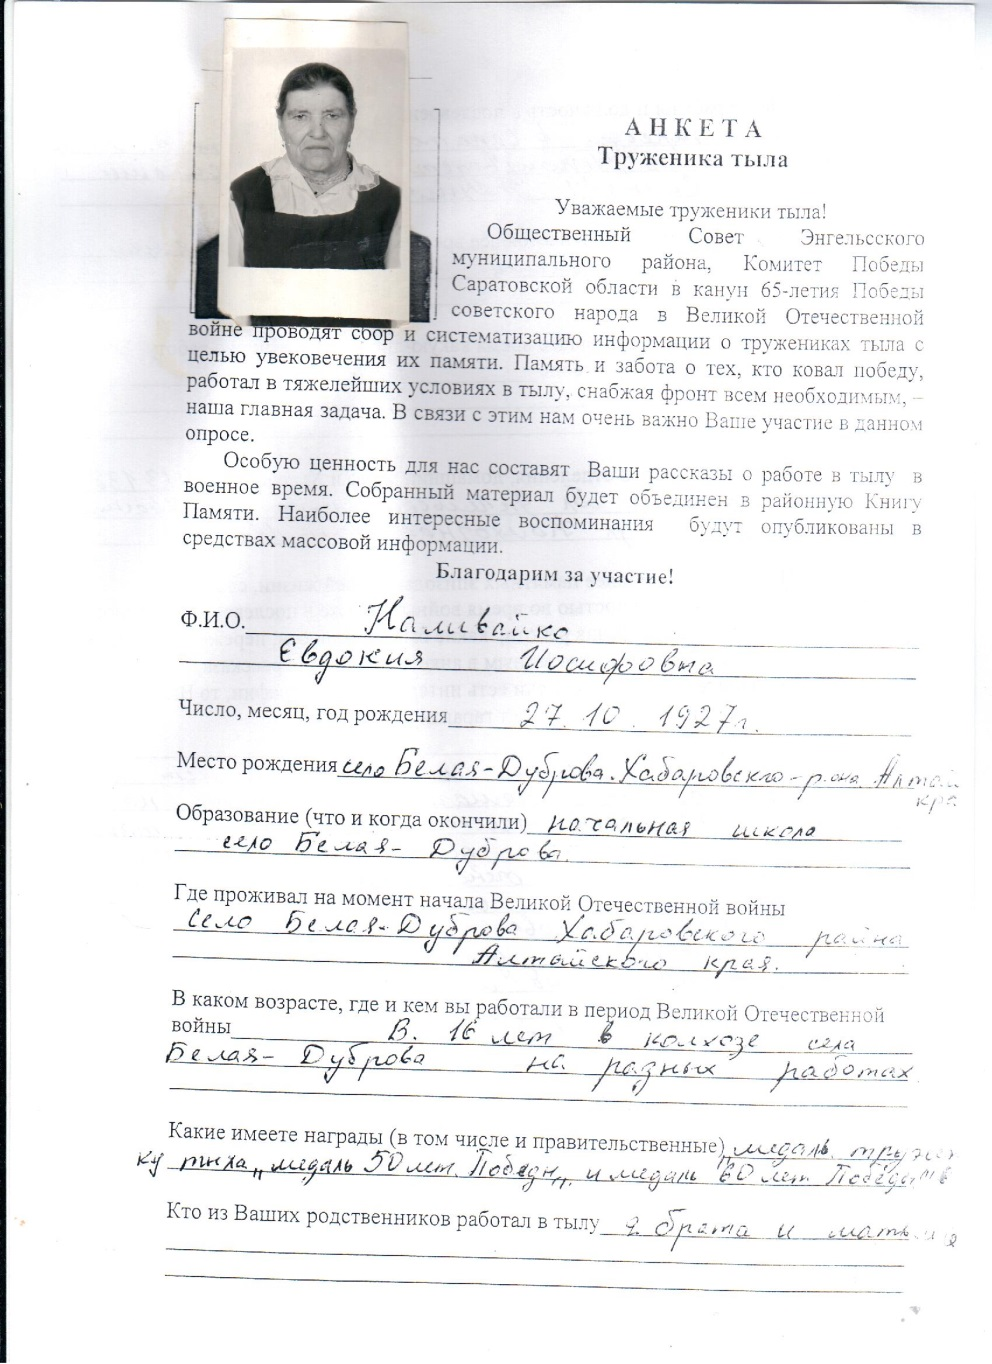 АНКЕТА
Труженика тыла
Уважаемые труженики тыла!
Общественный Совет Энгельсского
муниципального района, Комитет Победы
Саратовской области в канун 65-летия Победы
советского народа в Великой Отечественной
войне проводят сбор и систематизацию информации о тружениках тыла с
целью увековечения их памяти. Память и забота о тех, кто ковал победу,
работал в тяжелейших условиях в тылу, снабжая фронт всем необходимым, –
наша главная задача. В связи с этим нам очень важно Ваше участие в данном
опросе.
Особую ценность для нас составят Ваши рассказы о работе в тылу в
военное время. Собранный материал будет объединен в районную Книгу
Памяти. Наиболее интересные воспоминания будут опубликованы в
средствах массовой информации.
Благодарим за участие!
Ф.И.О. Наливайко
Евдокия Иосифовна
Число, месяц, год рождения 27.10.1927г.
Место рождения село Белая-Дуброва. Хабаровского-р.она Алтай
кра
Образование (что и когда окончили) начальная школа
село Белая-Дуброва.
Где проживал на момент начала Великой Отечественной войны
село Белая-Дуброва Хабаровского райна
Алтайского края.
В каком возрасте, где и кем вы работали в период Великой Отечественной
войны В. 16 лет в колхозе села
Белая-Дуброва на разных работах
Какие имеете награды (в том числе и правительственные) „медаль тружен
ку тыла„ медаль 50 лет. Победы„ и медаль 60 лет Победы
Кто из Ваших родственников работал в тылу 2 брата и мать